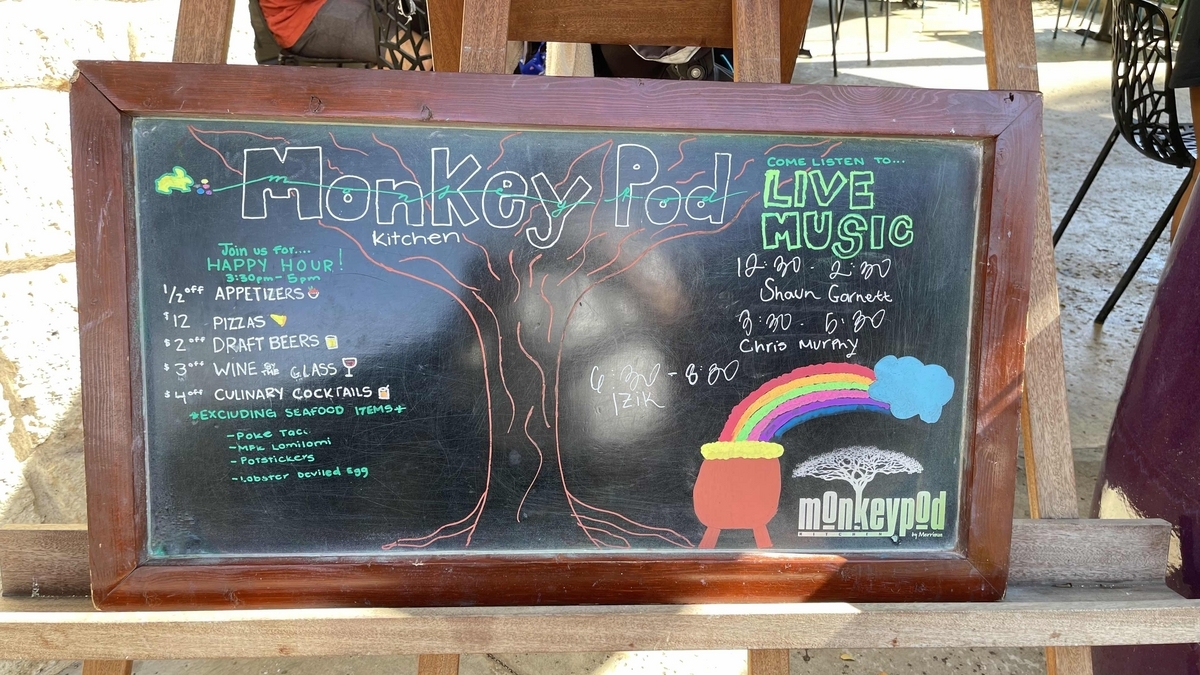 Monkey Pod
monkey pod
Kitchen
Join us for....
HAPPY HOUR!
3:30pm - 5pm
1/2 off APPETIZERS
$12 PIZZAS
$2 off DRAFT BEERS
$3 off WINE BY THE GLASS
$4 off CULINARY COCKTAILS
*EXCLUDING SEAFOOD ITEMS*
-Poke Taco
-MPK Lomilomi
-Potstickers
-Lobster Deviled Egg
COME LISTEN TO...
LIVE
MUSIC
12:30 - 2:30
Shawn Garnett
3:30 - 5:30
Chris Murphy
6:30 - 8:30
IZIK
monkeypod
KITCHEN by Merriman